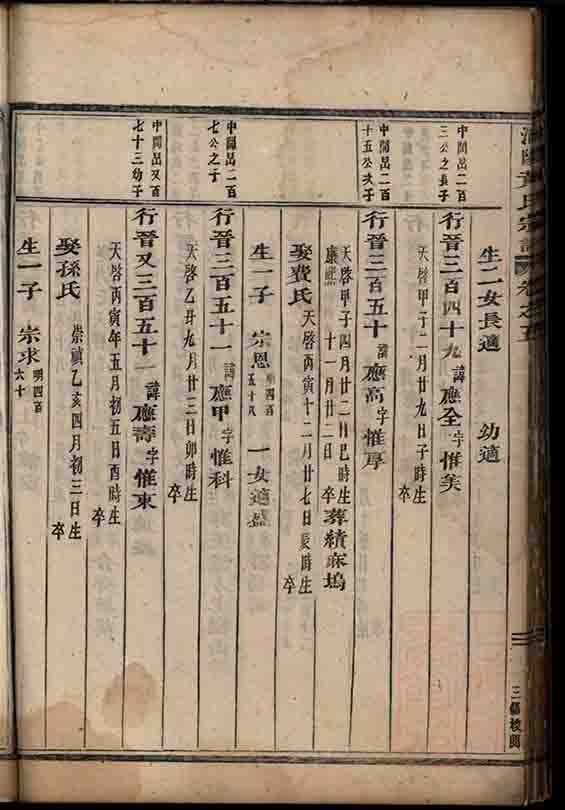 黃氏宗譜 卷之五
三槐校閱
生二女長適 幼適
中閶嵒二百
三公之長子
行晉三百四十九諱應全字惟美
天啓甲子二月廿九日子時生
卒
中閶嵒二百
十五公次子
行晉三百五十諱應高字惟厚
天啓甲子四月廿二日巳時生
康熙 十一月廿二日卒
葬績麻塢
娶費氏 天啓丙寅十二月廿七日辰時生
卒
生一子 宗恩 明四百
五十八 一女適盛
中閶嵒二百
七公之子
行晉三百五十一諱應甲字惟科
天啓乙丑九月廿三日卯時生
卒
中閶嵒又百
七十三幼子
行晉又三百五十一諱應壽字惟東
天啓丙寅年五月初五日酉時生
卒
娶孫氏 崇禎乙亥四月初三日生
卒
生一子 宗求 明四百
六十